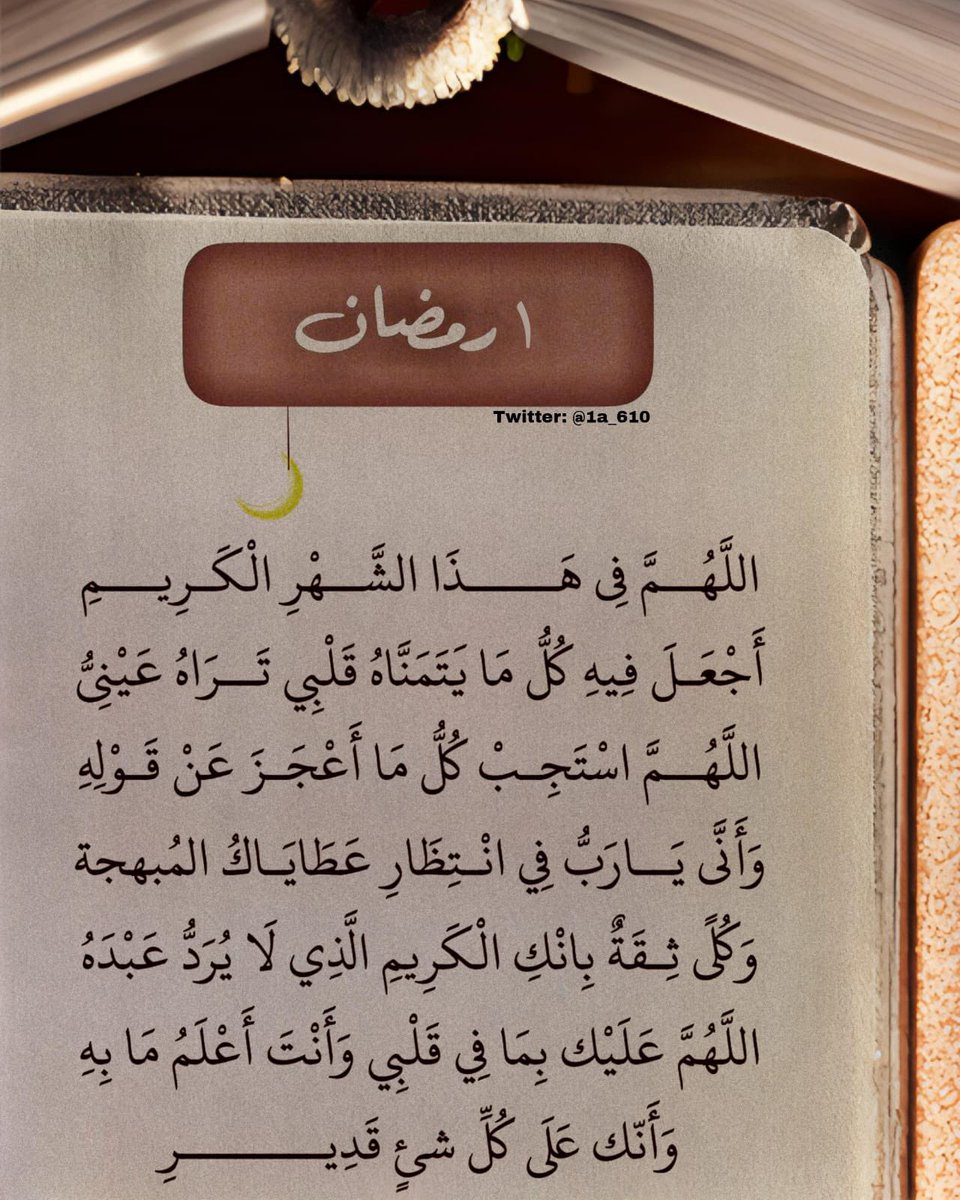 ١ رمضان
Twitter: @1a_610
اللَّهُمَّ فِى هَذَا الشَّهْرِ الْكَرِيمِ
أَجْعَلَ فِيهِ كُلُّ مَا يَتَمَنَّاهُ قَلْبِي تَرَاهُ عَيْنِىُّ
اللَّهُمَّ اسْتَجِبْ كُلُّ مَا أَعْجَزَ عَنْ قَوْلِهِ
وَأَنَّى يَارَبُّ فِي انْتِظَارِ عَطَايَاكُ المُبهجة
وَكُلًى ثِقَةٌ بِانْكِ الْكَرِيمِ الَّذِي لَا يُرَدُّ عَبْدَهُ
اللَّهُمَّ عَلَيْك بِمَا فِي قَلْبِي وَأَنْتَ أَعْلَمُ مَا بِهِ
وَأَنّك عَلَى كُلِّ شئٍ قَدِيرِ